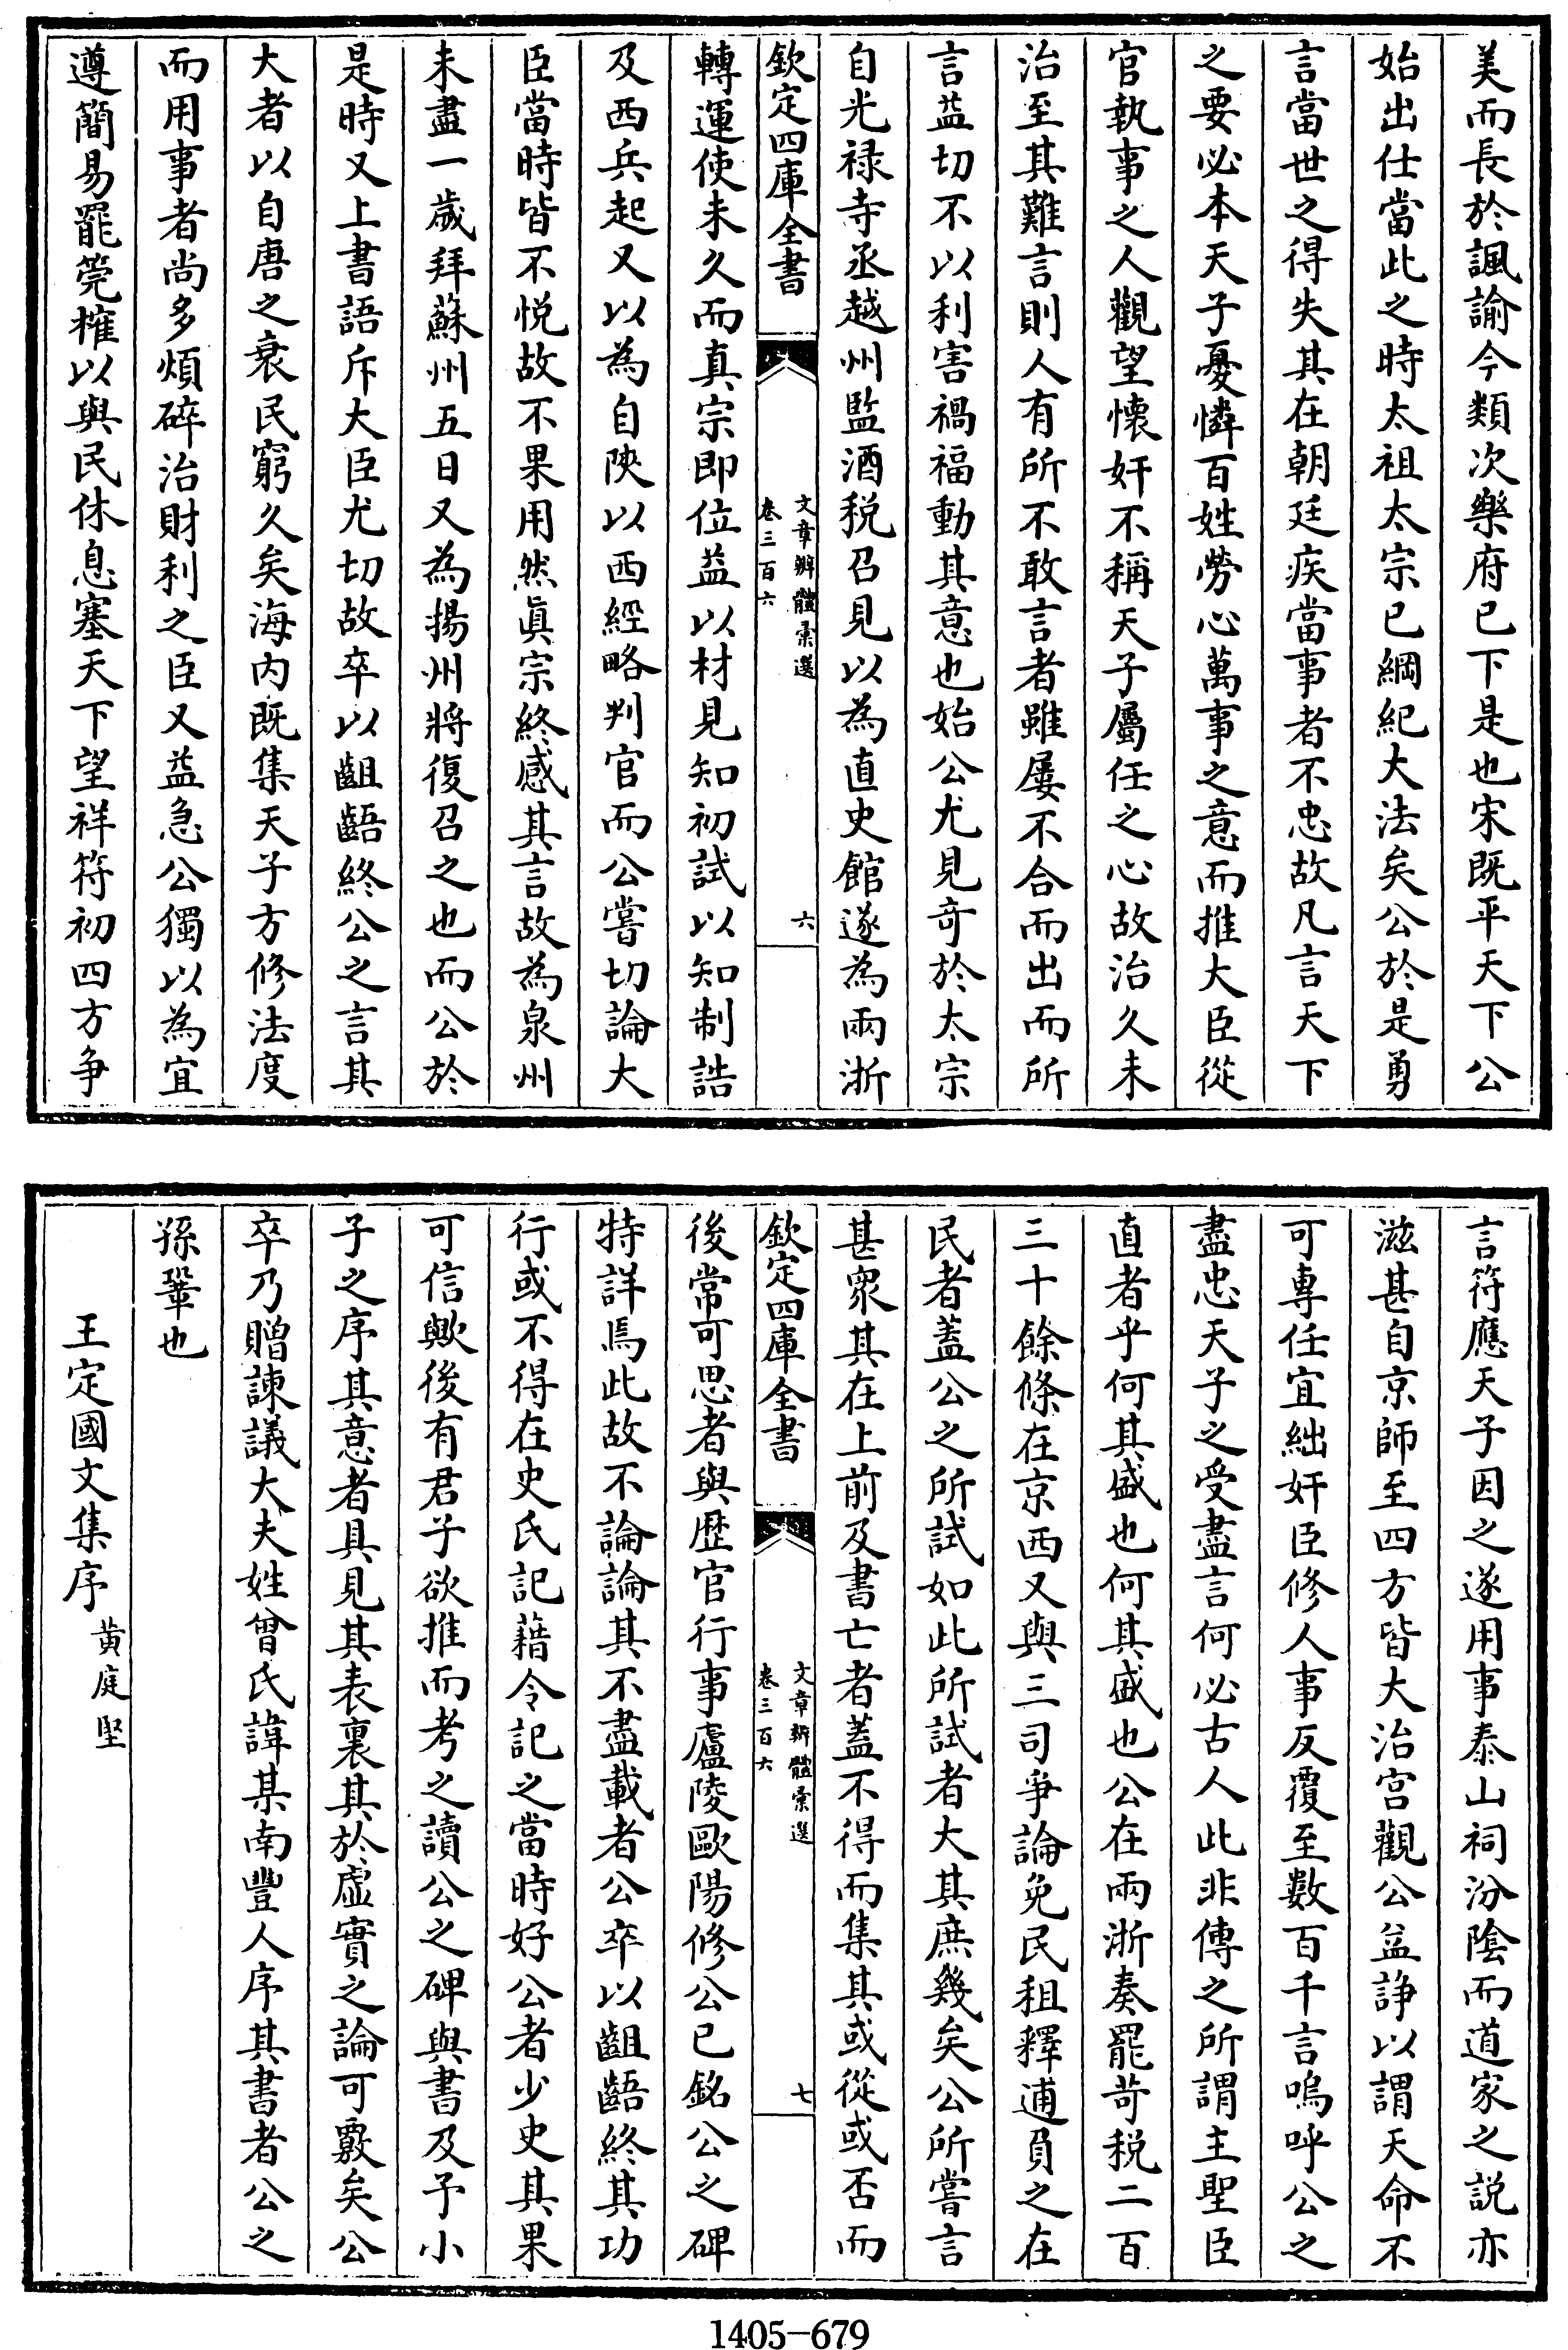 美而長於諷諭今類次樂府已下是也宋既平天下公
始出仕當此之時太祖太宗已綱紀大法矣公於是勇
言當世之得失其在朝廷疾當事者不忠故凡言天下
之要必本天子憂憐百姓勞心萬事之意而推大臣從
官執事之人觀望懷奸不稱天子屬任之心故治久未
治至其難言則人有所不敢言者雖屢不合而出而所
言益切不以利害禍福動其意也始公尤見奇於太宗
自光禄寺丞越州監酒税召見以為直史館遂為兩浙
欽定四庫全書
文章辨體彙選
卷三百六
六
轉運使未久而真宗即位益以材見知初試以知制誥
及西兵起又以為自陜以西經略判官而公嘗切論大
臣當時皆不悦故不果用然真宗終感其言故為泉州
未盡一歲拜蘇州五日又為揚州將復召之也而公於
是時又上書語斥大臣尤切故卒以齟齬終公之言其
大者以自唐之衰民窮久矣海内既集天子方修法度
而用事者尚多煩碎治財利之臣又益急公獨以為宜
遵簡易罷筦榷以與民休息塞天下望祥符初四方争
言符應天子因之遂用事泰山祠汾陰而道家之説亦
滋甚自京師至四方皆大治宫觀公益諍以謂天命不
可專任宜絀奸臣修人事反覆至數百千言嗚呼公之
盡忠天子之受盡言何必古人此非傳之所謂主聖臣
直者乎何其盛也何其盛也公在兩浙奏罷苛税二百
三十餘條在京西又與三司爭論免民租釋逋負之在
民者蓋公之所試如此所試者大其庶幾矣公所嘗言
甚衆其在上前及書亡者蓋不得而集其或從或否而
欽定四庫全書
文章辨體彙選
卷三百六
七
後常可思者與歴官行事廬陵歐陽修公已銘公之碑
特詳焉此故不論論其不盡載者公卒以齟齬終其功
行或不得在史氏記藉令記之當時好公者少史其果
可信歟後有君子欲推而考之讀公之碑與書及予小
子之序其意者具見其表裏其於虛實之論可覈矣公
卒乃贈諫議大夫姓曾氏諱某南豐人序其書者公之
孫鞏也
王定國文集序
黄庭堅
1405-679